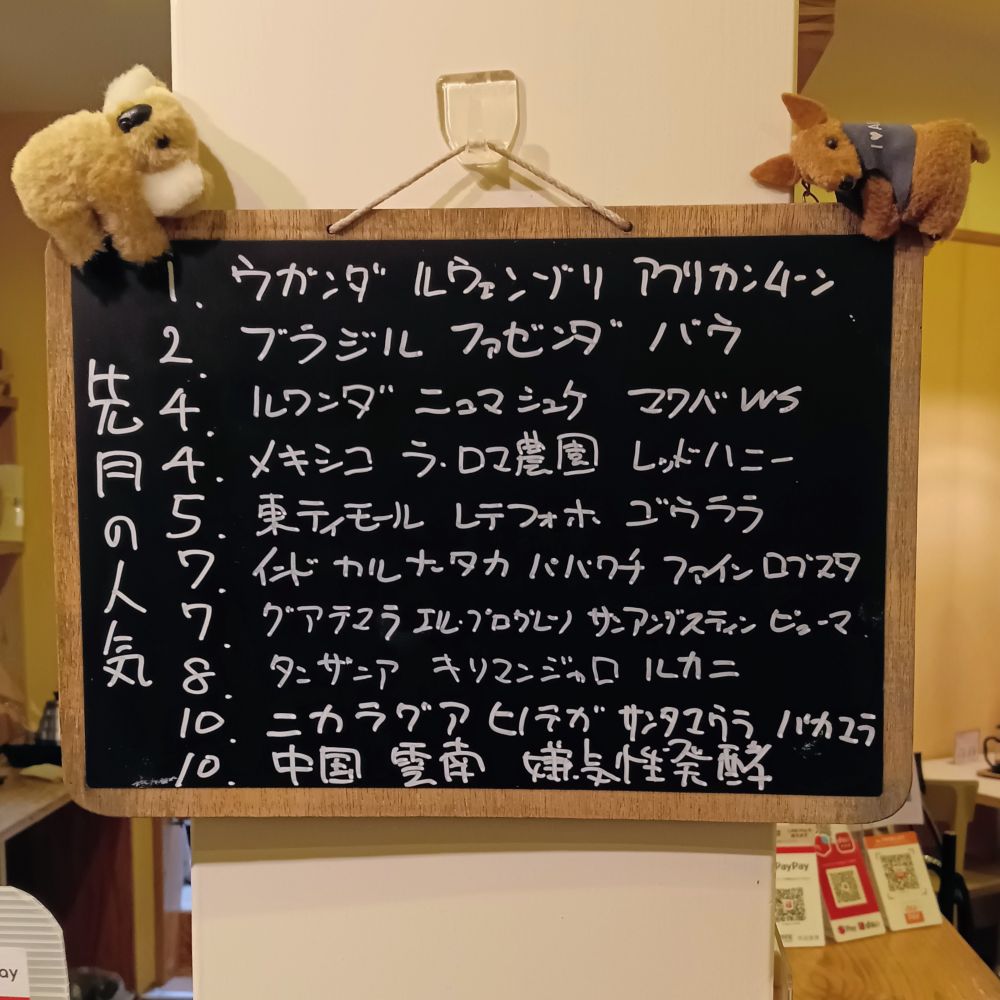 先月の人気
1. ウガンダ ルウェンゾリ アフリカンムーン
2. ブラジル ファゼンダ バウ
4. ルワンダ ニュマシュケ マクバ WS
4. メキシコ ラ・ロマ農園 レッドハニー
5. 東ティモール レテフォホ ゴウララ
7. インド カルナータカ ババワチ ファイン ロブスタ
7. グアテマラ エル・プログレソ サンアグスティン ピューマ
8. タンザニア キリマンジャロ ルカニ
10. ニカラグア ヒノテガ サンタマウラ パカマラ
10. 中国 雲南 嫌気性発酵
I ♥ A
PayPay
ay